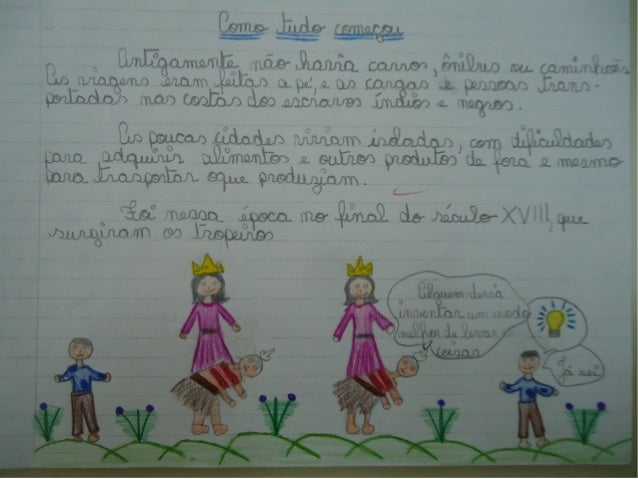 Como tudo começou
Antigamente não havia carros, ônibus ou caminhões
As viagens eram feitas a pé, e as cargas e pessoas trans-
portadas nas costas dos escravos índios e negros.
As poucas cidades viviam isoladas, com dificuldades
para adquirir alimentos e outros produtos de fora e mesmo
para trasportar oque produziam.
Foi nessa época no final do século XVIII, que
surgiram os tropeiros
Alguem devia
inventar um modo
melhor de levar
coisas
Já sei